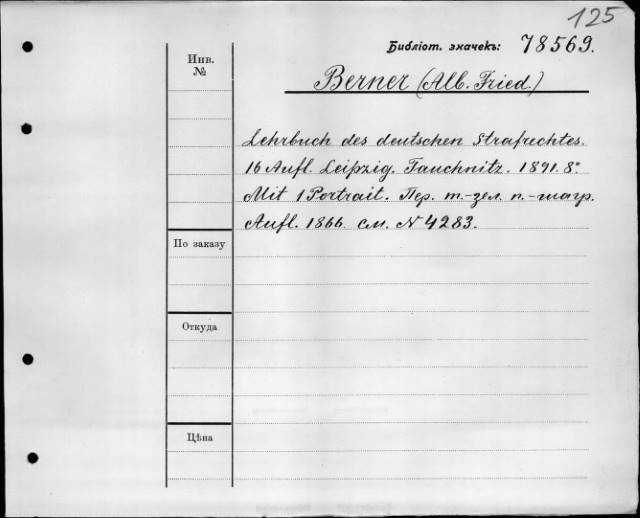 125
Библіот. значекъ: 78569.
Инв.
№
Berner (Alb. Fried.)
Lehrbuch des deutschen Strafrechtes.
16 Aufl. Leipzig. Tauchnitz. 1891. 8°
Mit 1 Portrait. Пер. т.-зел. п.-шагр.
Aufl. 1866. см. N 4283.
По заказу
Откуда
Цѣна